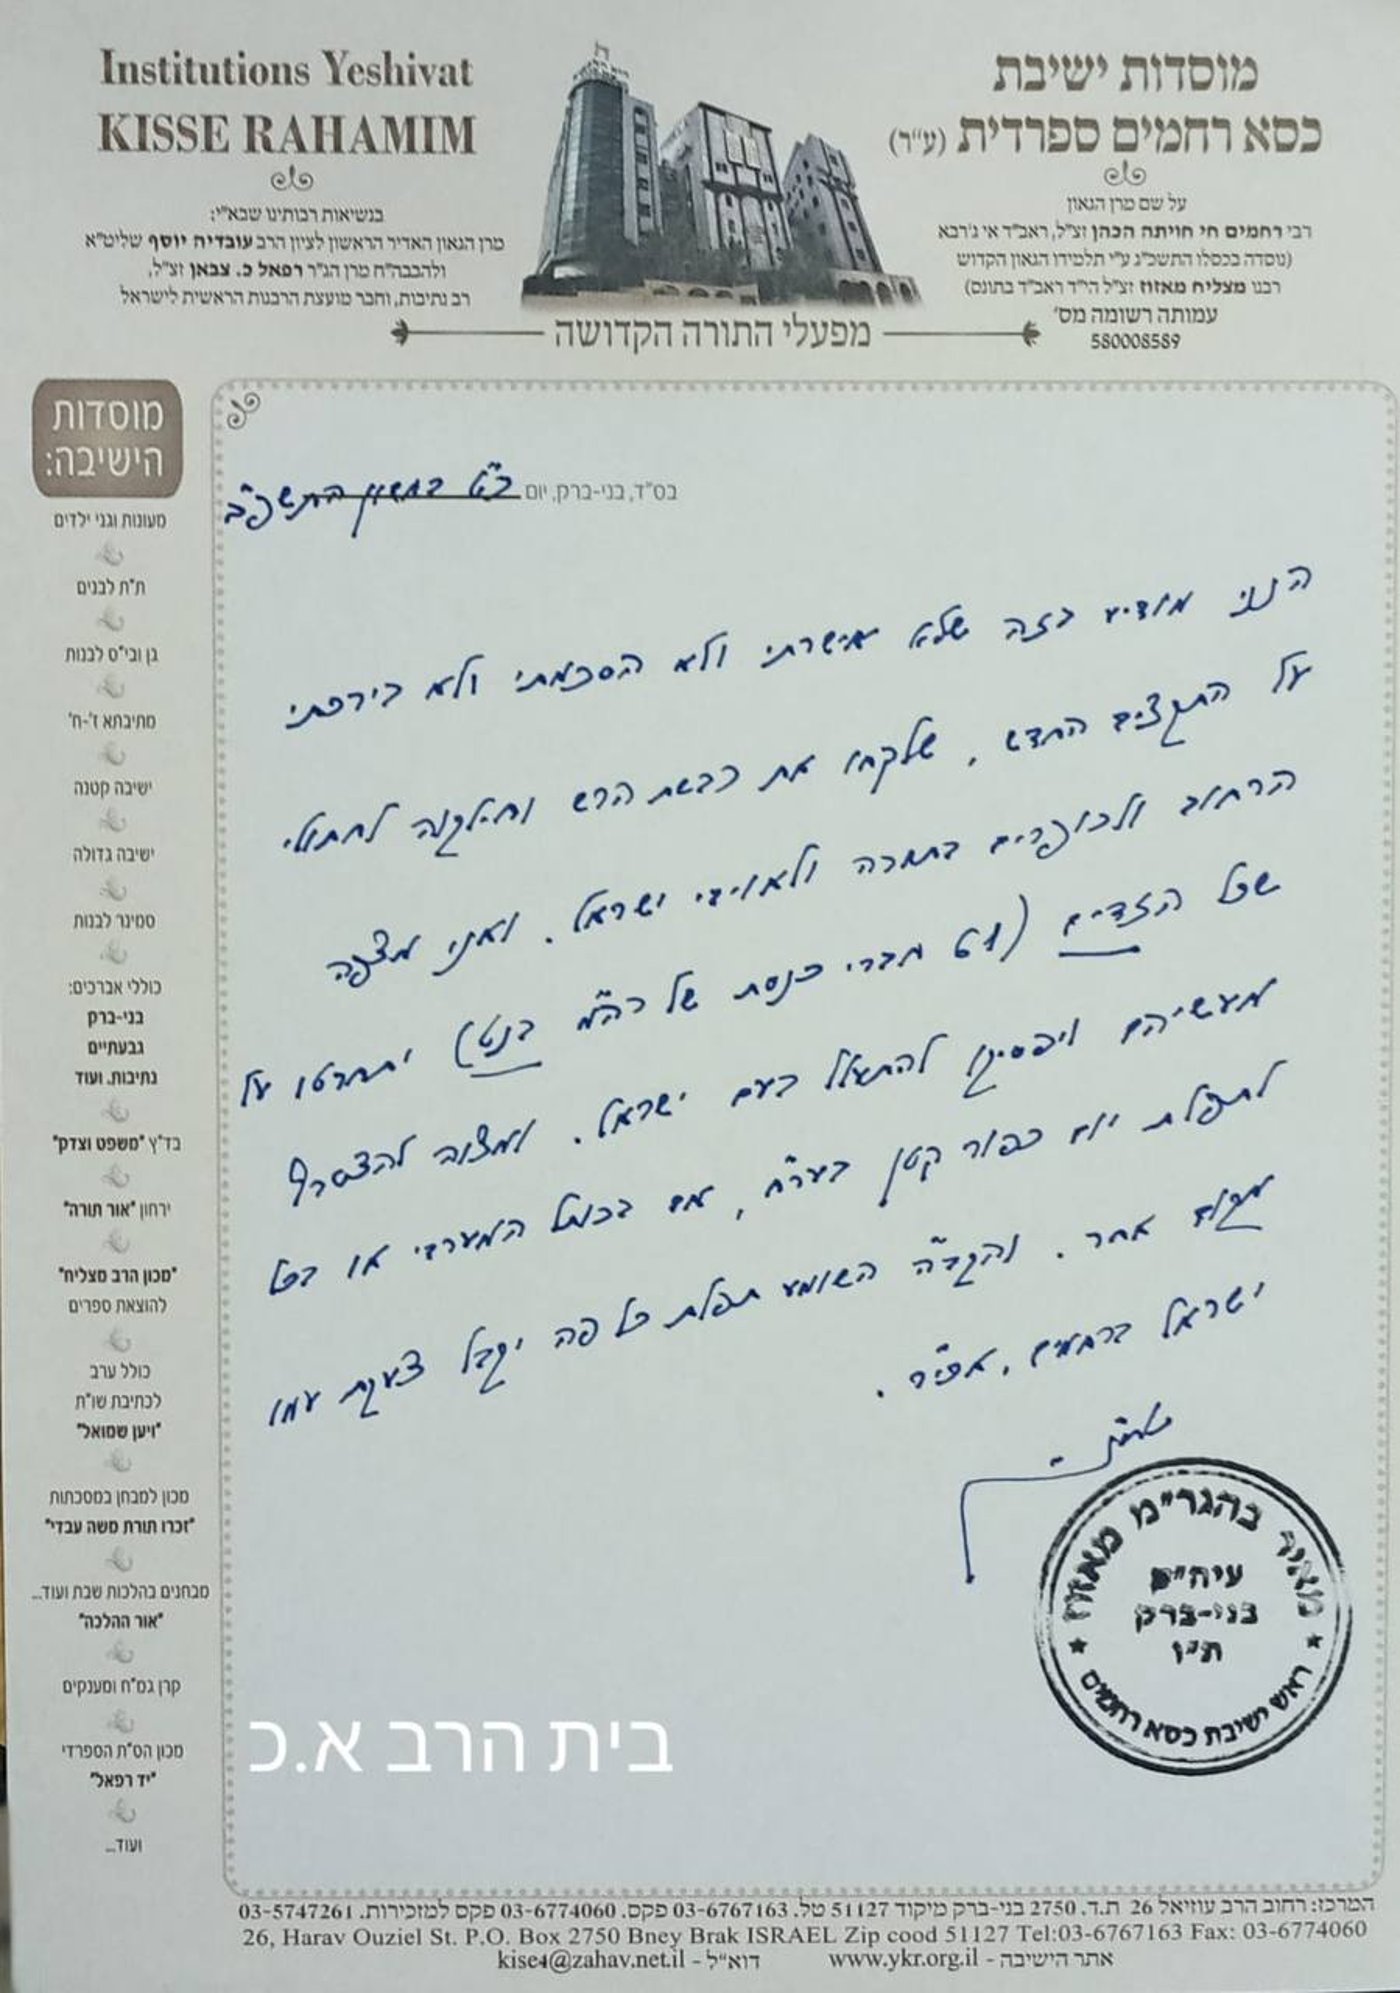 Institutions Yeshivat
KISSE RAHAMIM
בנשיאות רבותינו שבא"י:
מרן הגאון האדיר הראשון לציון הרב עובדיה יוסף שליט"א
ולהבבה"ח מרן הג"ר רפאל כ. צבאן זצ"ל,
רב נתיבות, וחבר מועצת הרבנות הראשית לישראל
מוסדות ישיבת
כסא רחמים ספרדית (ע"ר)
על שם מרן הגאון
רבי רחמים חי חויתה הכהן זצ"ל, ראב"ד אי ג'רבא
(נוסדה בכסלו התשכ"ג ע"י תלמידו הגאון הקדוש
רבנו מצליח מאזוז זצ"ל הי"ד ראב"ד בתונס)
עמותה רשומה מס'
580008589
מפעלי התורה הקדושה
מוסדות
הישיבה:
מעונות וגני ילדים
ת"ת לבנים
גן ובי"ס לבנות
מתיבתא ז'-ח'
ישיבה קטנה
ישיבה גדולה
סמינר לבנות
כוללי אברכים:
בני-ברק
גבעתיים
נתיבות, ועוד
בד"ץ "משפט וצדק"
ירחון "אור תורה"
"מכון הרב מצליח"
להוצאת ספרים
כולל ערב
לכתיבת שו"ת
"ויען שמואל"
מכון למבחן במסכתות
"זכרו תורת משה עבדי"
מבחנים בהלכות שבת ועוד...
"אור ההלכה"
קרן גמ"ח ומענקים
מכון הס"ת הספרדי
"יד רפאל"
ועוד...
בס"ד, בני-ברק, יום כ"ט בחשון התשפ"ב
הנני מודיע בזה שלא אישרתי ולא הסכמתי ולא בירכתי
על התקציב החדש, שלקחו את כבשת הרש וחילקוה לחתולי
הרחוב ולכופרים בתורה ולאויבי ישראל. ואני מצפה
שכל הזדים (61 חברי כנסת של רה"מ בנט) יתחרטו על
מעשיהם ויפסיקו להתעלל בעם ישראל. ומצוה להצטרף
לתפלת יום כפור קטן בער"ח, אם בכותל המערבי או בכל
מקום אחר. והקב"ה השומע תפלת כל פה יקבל צעקת עמו
ישראל ברחמים, אכי"ר.
מאיר בהגר"מ מאזוז
עיה"ס
בני-ברק
ת"ו
ראש ישיבת כסא רחמים
בית הרב א.כ
המרכז: רחוב הרב עוזיאל 26 ת.ד. 2750 בני-ברק מיקוד 51127 טל. 03-6767163 פקס. 03-6774060 פקס למזכירות. 03-5747261
26, Harav Ouziel St. P.O. Box 2750 Bney Brak ISRAEL Zip cood 51127 Tel:03-6767163 Fax: 03-6774060
אתר הישיבה - www.ykr.org.il דוא"ל - kise4@zahav.net.il